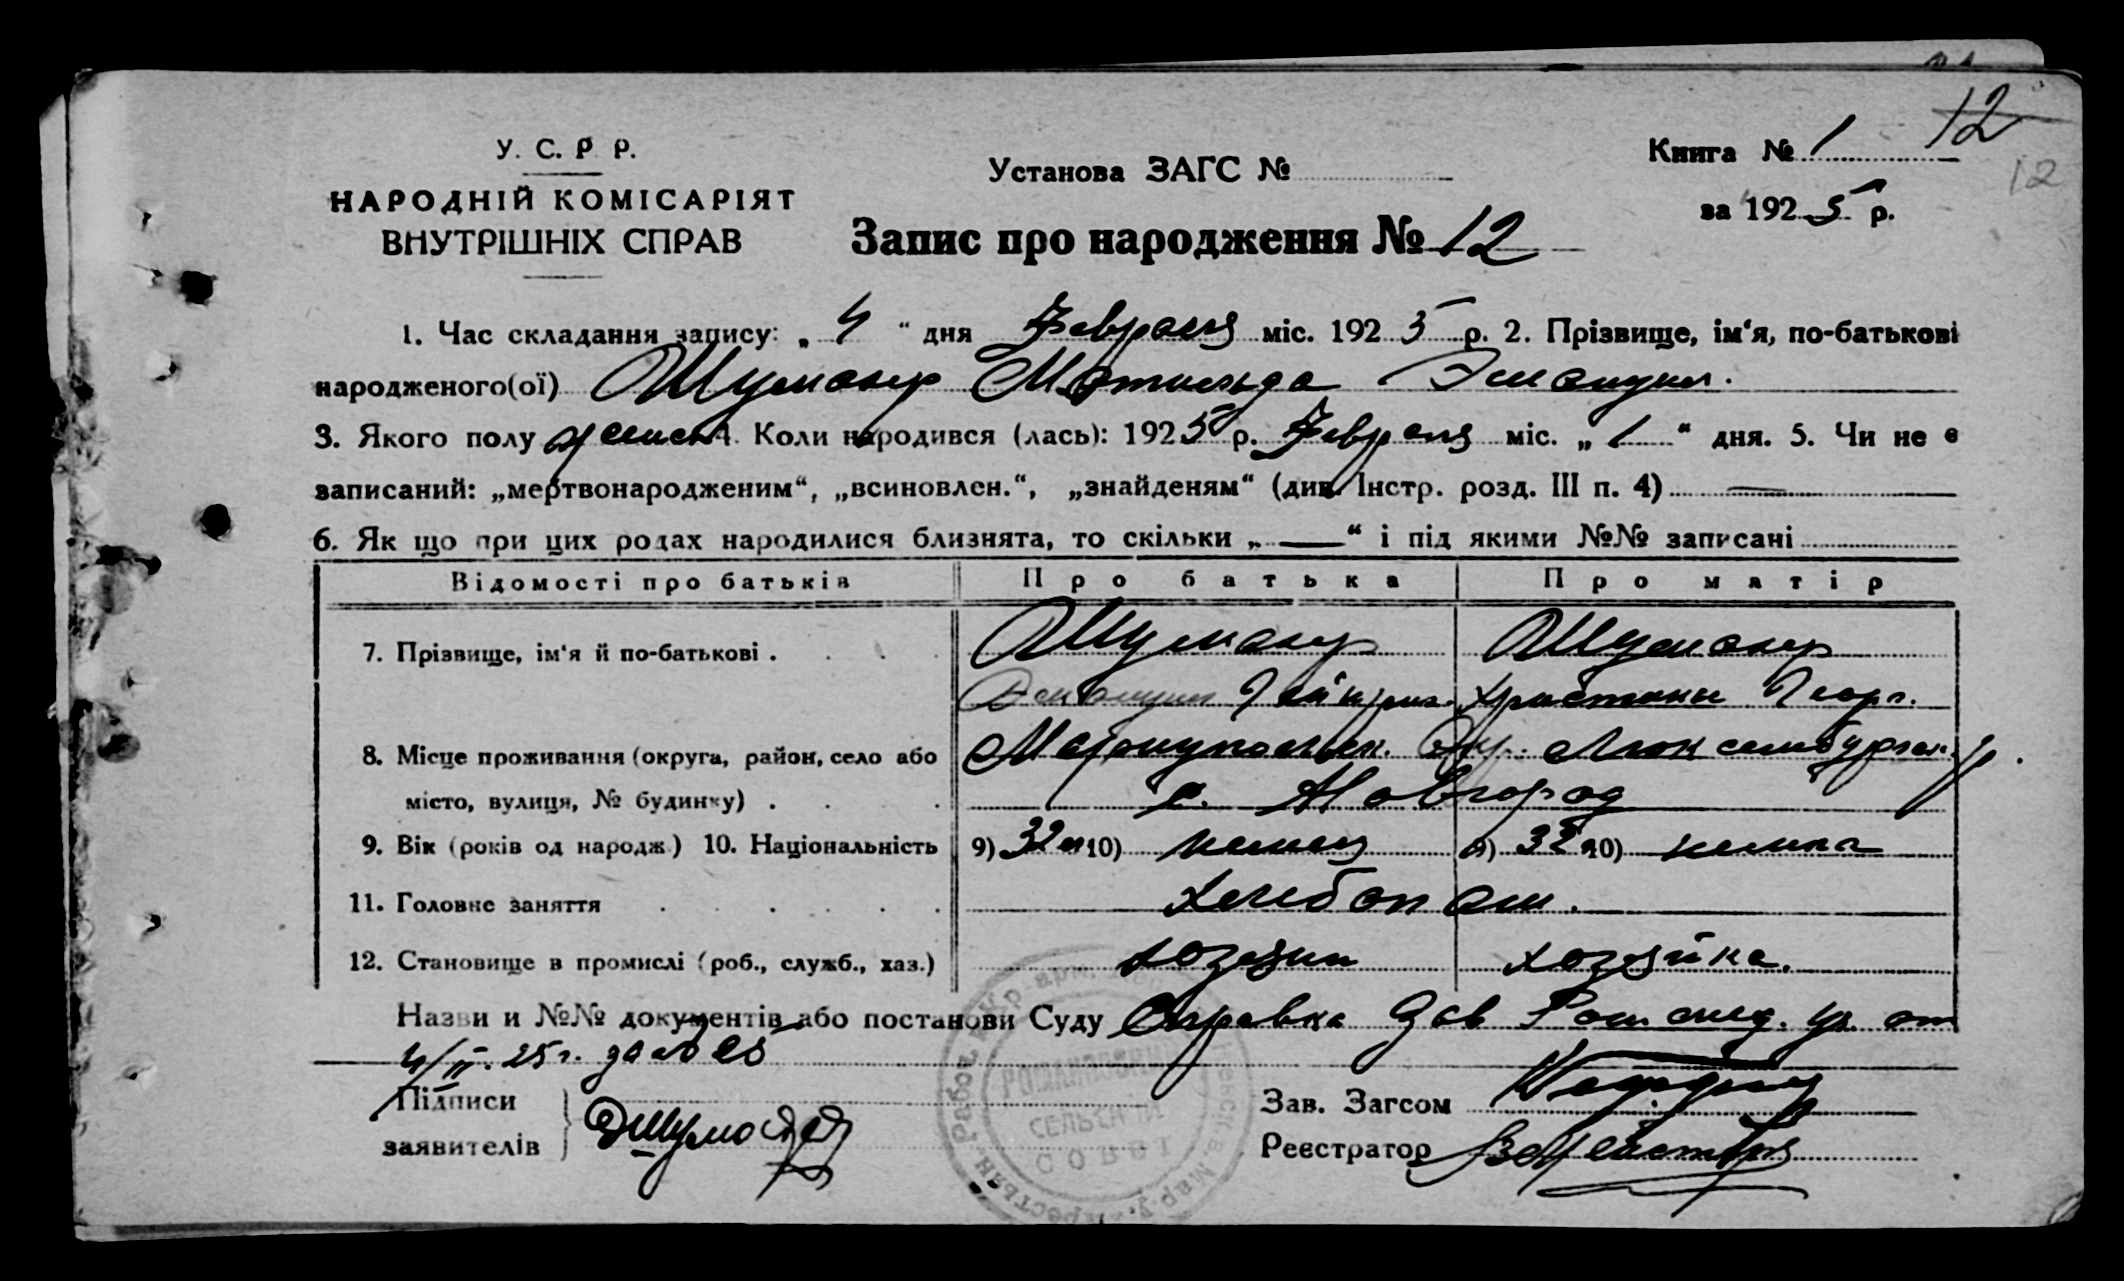 12
У. С. Р Р.
НАРОДНІЙ КОМІСАРІЯТ
ВНУТРІШНІХ СПРАВ
Установа ЗАГС №
Книга № 1
12
за 1925 р.
Запис про народження № 12
1. Час складання запису: „ 4 “ дня Февраля міс. 1925 р. 2. Прізвище, ім‘я, по-батькові
народженого(ої) Шуманер Матильда Эмануил.
3. Якого полу женск 4. Коли народився (лась): 1925 р. Февраля міс. „ 1 “ дня. 5. Чи не є
записаний: „мертвонародженим“, „всиновлен.“, „знайденям“ (див. Інстр. розд. III п. 4) —
6. Як що при цих родах народилися близнята, то скільки „ — “ і під якими №№ записані
Відомості про батьків Про батька Про матір
7. Прізвище, ім‘я й по-батькові . Шуманер Шуманер
Эмануил Гейнрих. Христина Георг.
8. Місце проживання (округа, район, село або Мариупольск. Окр. Люксембургск. р.
місто, вулиця, № будинку) . с. Новгород
9. Вік (років од народж.) 10. Національність 9) 32 л 10) немец 9) 32 10) немка
11. Головне заняття Хлебопаш.
12. Становище в промислі (роб., служб., хаз.) хозяин хозяйка.
Назви и №№ документів або постанови Суду Справка Зав от
4/II. 25 г. за
Підписи
заявителів
Зав. Загсом
Реєстратор
СЕЛЬСКИЙ
СОВЕТ